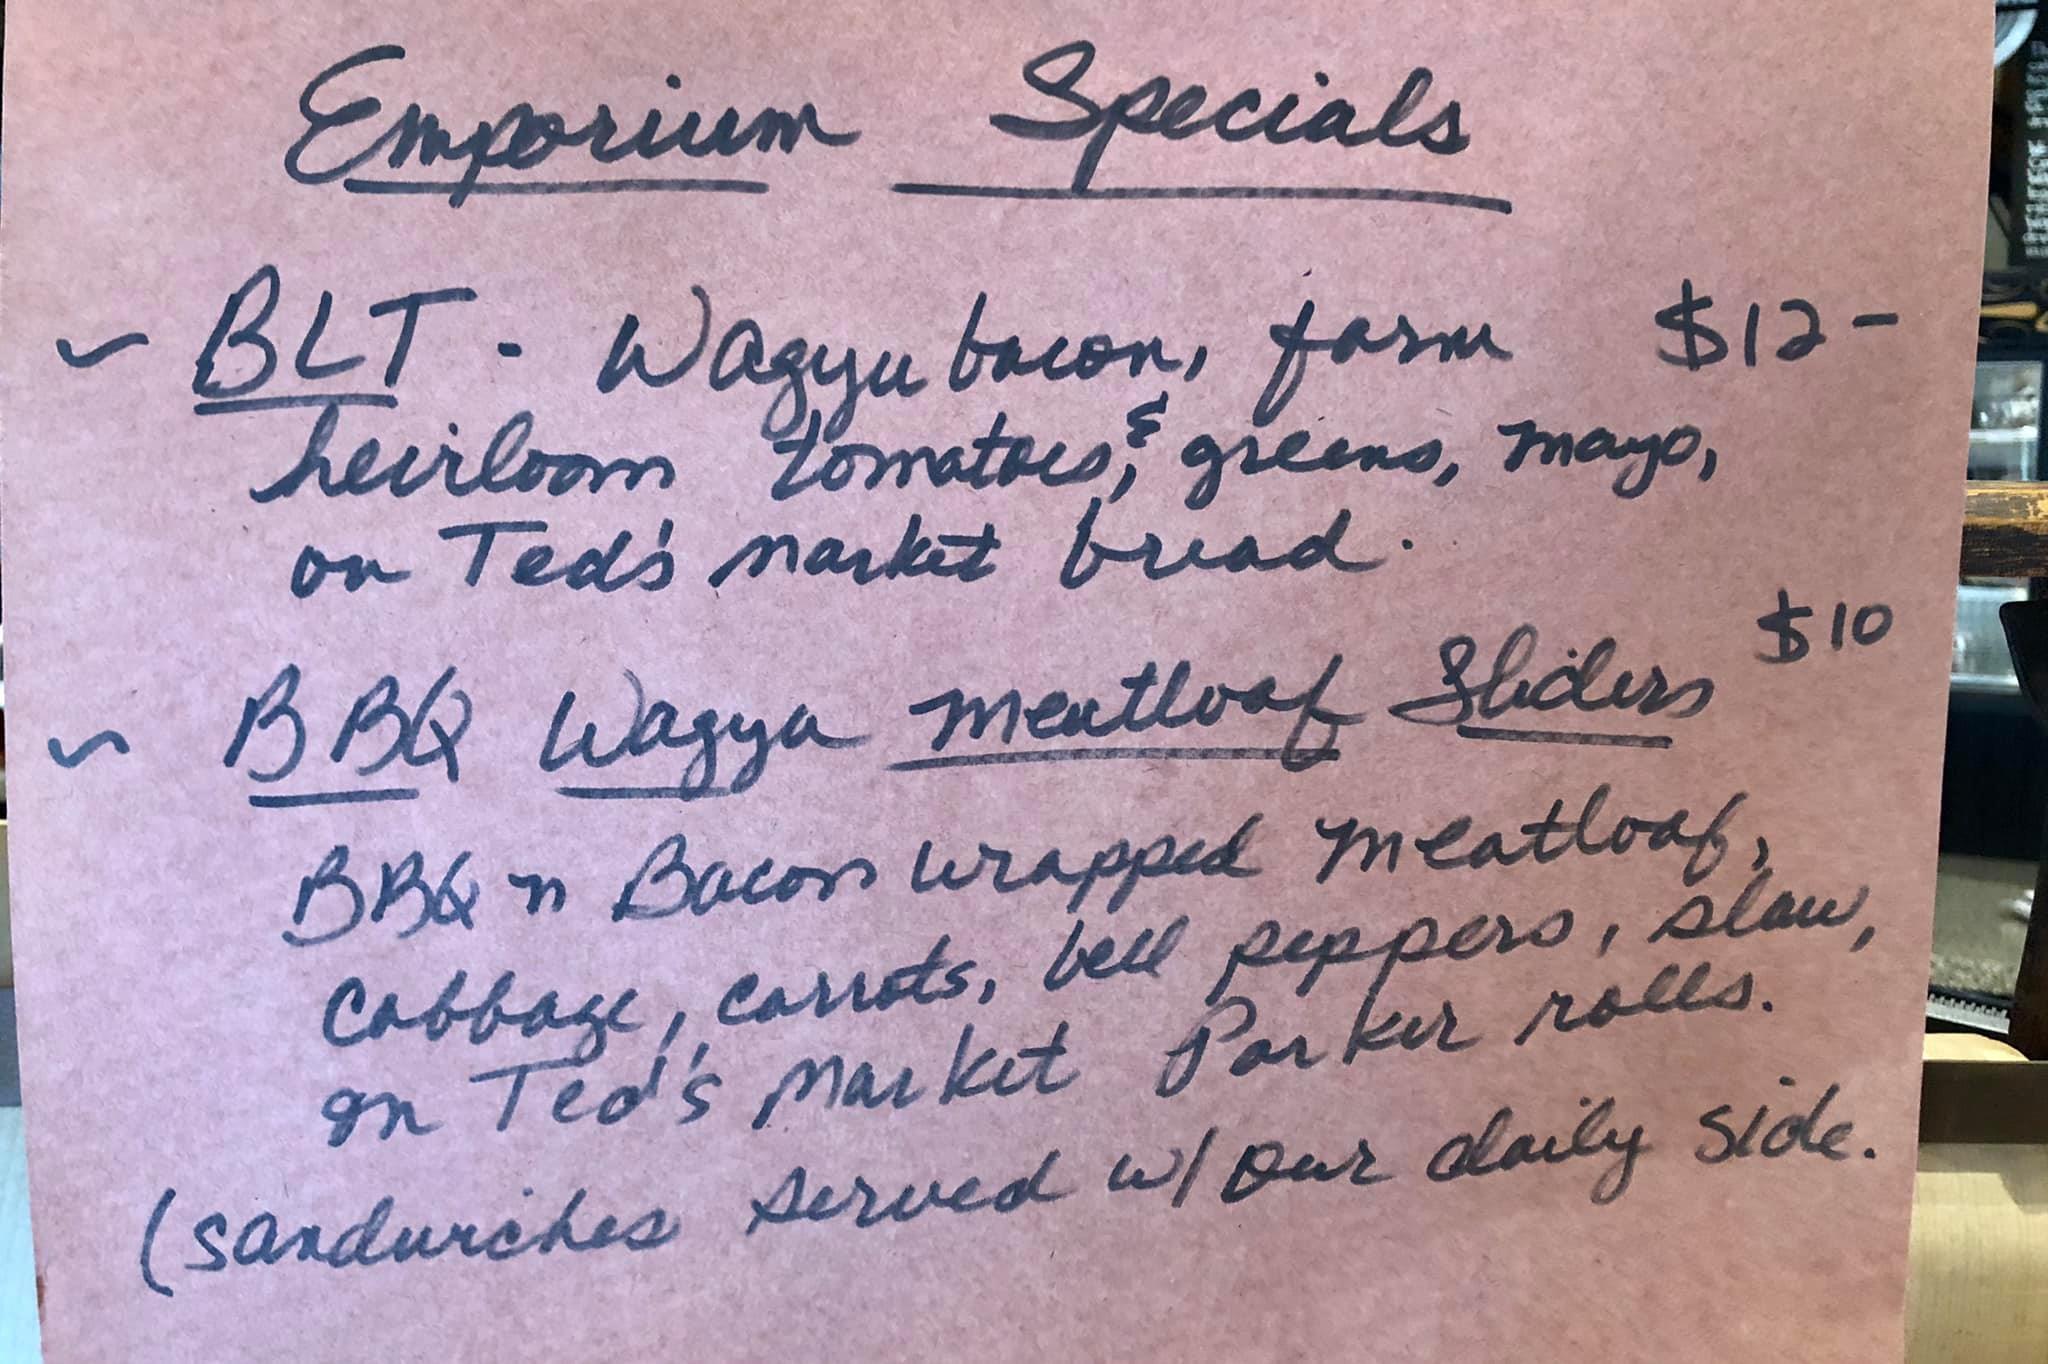 Emporium Specials
~ BLT - Wagyu bacon, farm $12-
heirloom tomatoes, & greens, mayo,
on Ted's market bread.
$10
~ BBQ Wagyu Meatloaf Sliders
BBQ n Bacon wrapped Meatloaf,
Cabbage, carrots, bell peppers, slaw,
on Ted's Market Parker rolls.
(sandwiches served w/ our daily side.